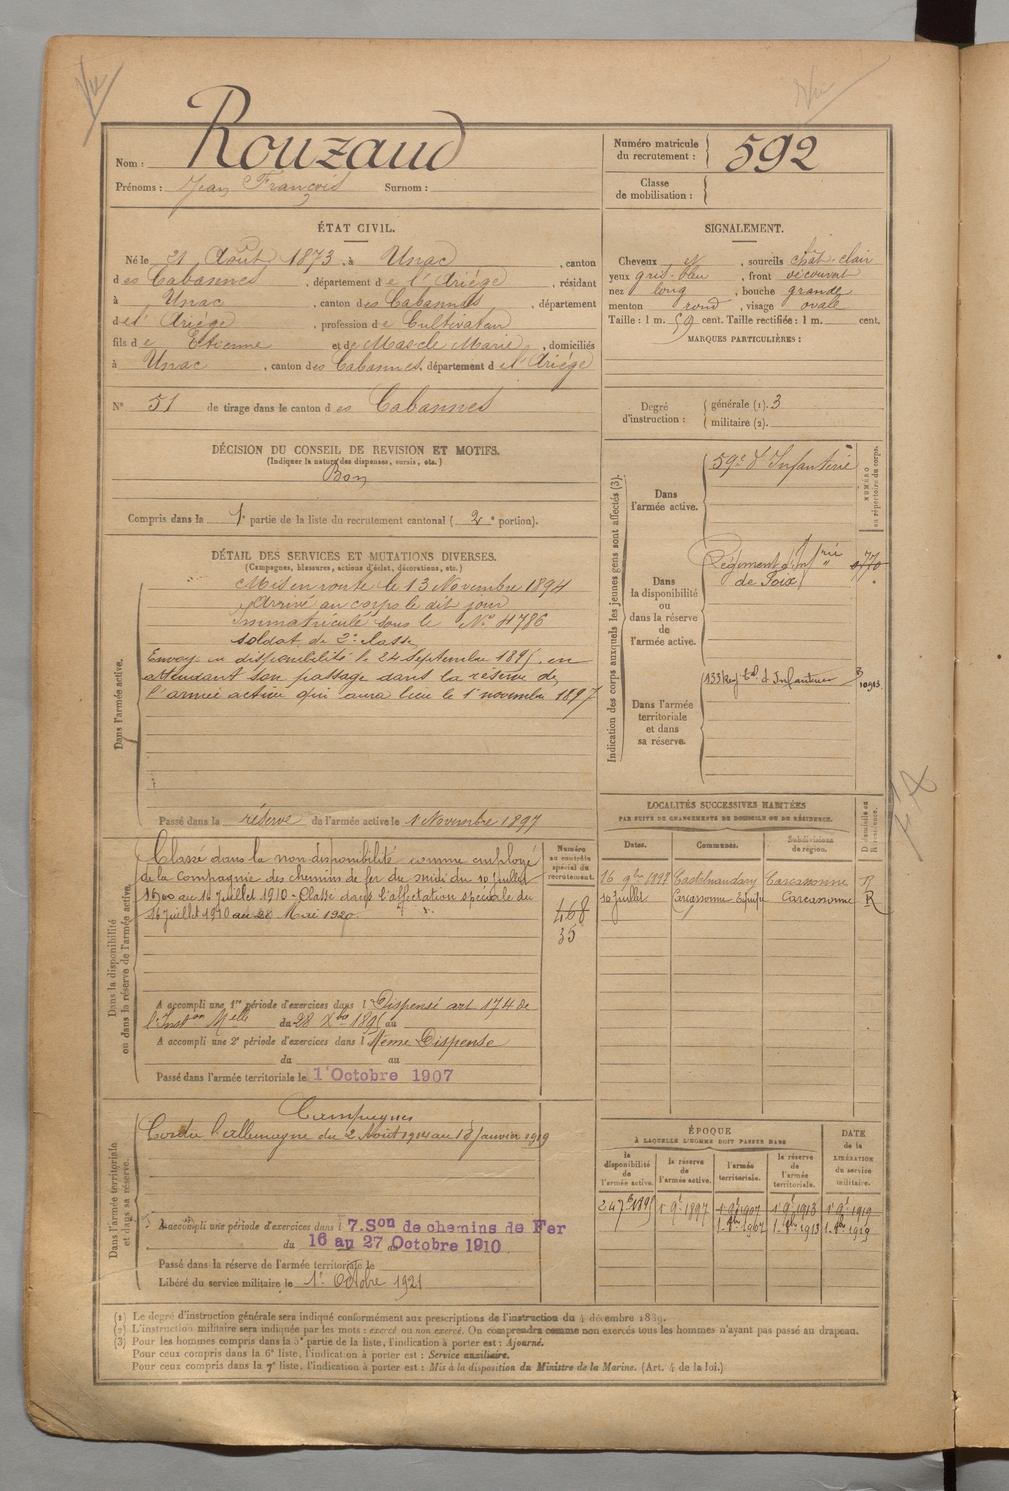 Vu
Nom : Rouzaud
Prénoms : Jean François Surnom :
Numéro matricule du recrutement : 592
Classe de mobilisation :
ÉTAT CIVIL.
Né le 21 Août 1873, à Unac, canton
des Cabannes, département de l'Ariége, résidant
à Unac, canton des Cabannes, département
de l'Ariége, profession de Cultivateur
fils de Etienne et de Mascle Marie, domiciliés
à Unac, canton des Cabannes, département de l'Ariége
N° 51 de tirage dans le canton des Cabannes
SIGNALEMENT.
Cheveux et, sourcils chât-clair
yeux gris-bleu, front découvert
nez long, bouche grande
menton rond, visage ovale
Taille : 1 m. 59 cent. Taille rectifiée : 1 m. cent.
MARQUES PARTICULIÈRES :
Degré d'instruction : générale (1). 3
militaire (2).
DÉCISION DU CONSEIL DE REVISION ET MOTIFS.
(Indiquer la nature des dispenses, sursis, etc.)
Bon
Compris dans la 1e partie de la liste du recrutement cantonal (2e portion).
DÉTAIL DES SERVICES ET MUTATIONS DIVERSES.
(Campagnes, blessures, actions d'éclat, décorations, etc.)
Dans l'armée active.
Mis en route le 13 Novembre 1894
Arrivé au corps le dit jour
Immatriculé sous le N° 4786
soldat de 2e classe
Envoyé en disponibilité le 24 Septembre 1895, en
attendant son passage dans la réserve de
l'armée active qui aura lieu le 1er novembre 1897
Passé dans la réserve de l'armée active le 1 Novembre 1897
Indication des corps auxquels les jeunes gens sont affectés (3).
NUMÉRO au répertoire du corps.
Dans l'armée active.
59e d'Infanterie
Dans la disponibilité ou dans la réserve de l'armée active.
Régiment d'Inf.rie
de Foix
Dans l'armée territoriale et dans sa réserve.
133 Reg tal d'Infanterie
LOCALITÉS SUCCESSIVES HABITÉES
PAR SUITE DE CHANGEMENTS DE DOMICILE OU DE RÉSIDENCE.
Dates. Communes. Subdivisions de région. D domicile ou R résidence.
16 9bre 1897 Castelnaudary Carcassonne R
10 juillet Carcassonne Carcassonne R
Dans la disponibilité ou dans la réserve de l'armée active.
Numéro au contrôle spécial du recrutement.
Classé dans la non disponibilité comme employé
de la Compagnie des chemins de fer du midi du 10 juillet
1900 au 16 juillet 1910 - Classé dans l'affectation spéciale du
16 juillet 1910 au 28 Mai 1920.
468
35
A accompli une 1re période d'exercices dans l Dispensé art 174 de
l'Inston Melle du 28 Xbre 1895 au
A accompli une 2e période d'exercices dans l Même Dispense
du au
Passé dans l'armée territoriale le 1er Octobre 1907
Dans l'armée territoriale et dans sa réserve.
Campagnes
Contre l'Allemagne du 2 Août 1914 au 18 Janvier 1919
A accompli une période d'exercices dans l 7.Son de chemins de Fer
du 16 au 27 Octobre 1910
Passé dans la réserve de l'armée territoriale le
Libéré du service militaire le 1er Octobre 1921
ÉPOQUE
À LAQUELLE L'HOMME DOIT PASSER DANS
la disponibilité de l'armée active. la réserve de l'armée active. l'armée territoriale. la réserve de l'armée territoriale. DATE de la LIBÉRATION du service militaire.
24 7bre 1895 1er 9bre 1897 1er 9bre 1907 1er 9bre 1913 1er 9bre 1919
(1) Le degré d'instruction générale sera indiqué conformément aux prescriptions de l'instruction du 4 décembre 1889.
(2) L'instruction militaire sera indiquée par les mots : exercé ou non exercé. On comprendra comme non exercés tous les hommes n'ayant pas passé au drapeau.
(3) Pour les hommes compris dans la 5e partie de la liste, l'indication à porter est : Ajourné.
Pour ceux compris dans la 6e liste, l'indication à porter est : Service auxiliaire.
Pour ceux compris dans la 7e liste, l'indication à porter est : Mis à la disposition du Ministre de la Marine. (Art. 4 de la loi.)